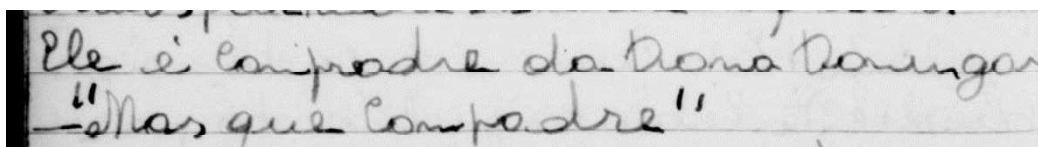 Ele é compadre da Dona Domingas
—"Mas que compadre"